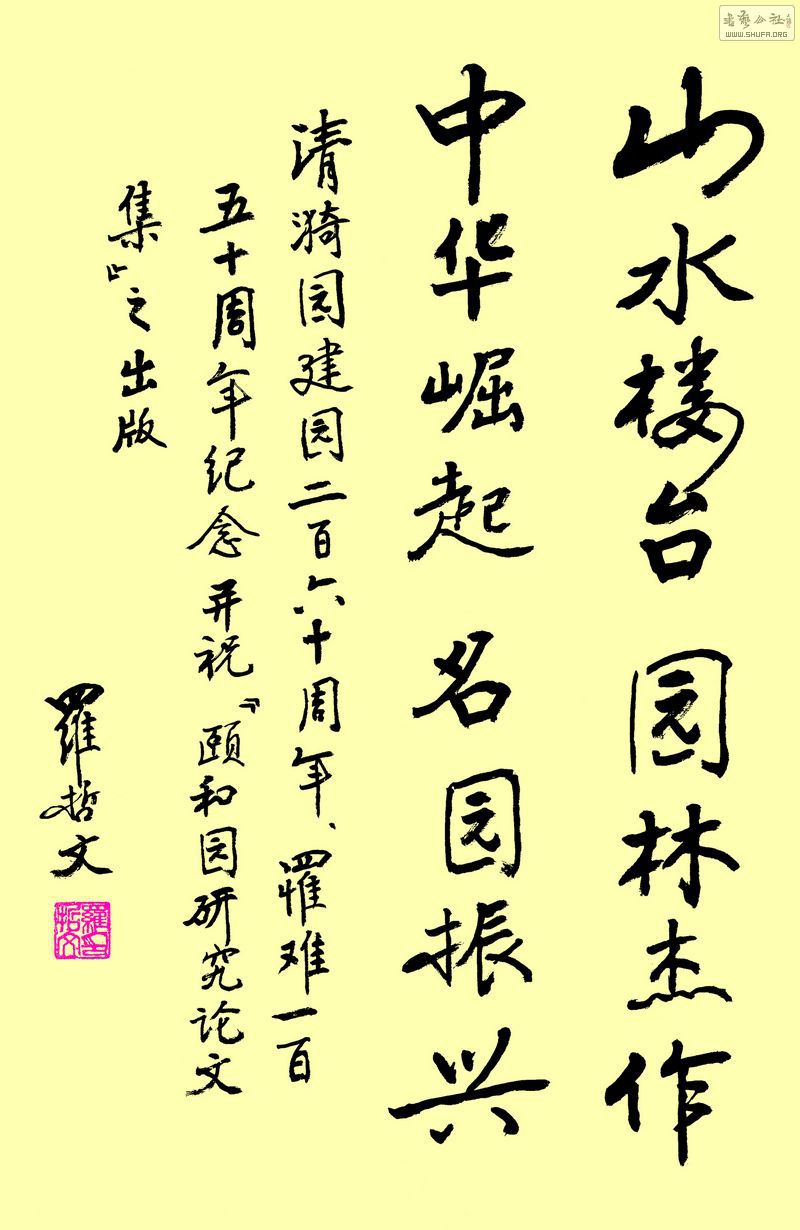 山水楼台 园林杰作
中华崛起 名园振兴
清漪园建园二百六十周年、罹难一百
五十周年纪念并祝「颐和园研究论文
集」之出版
羅哲文
羅哲文印
书艺公社
WWW.SHUFA.ORG